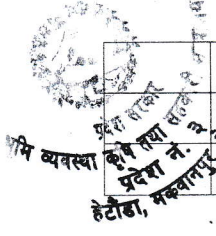 प्रदेश सरकार
भूमि व्यवस्था कृषि तथा सहकारी
प्रदेश नं. ३
हेटौंडा, मकवानपुर